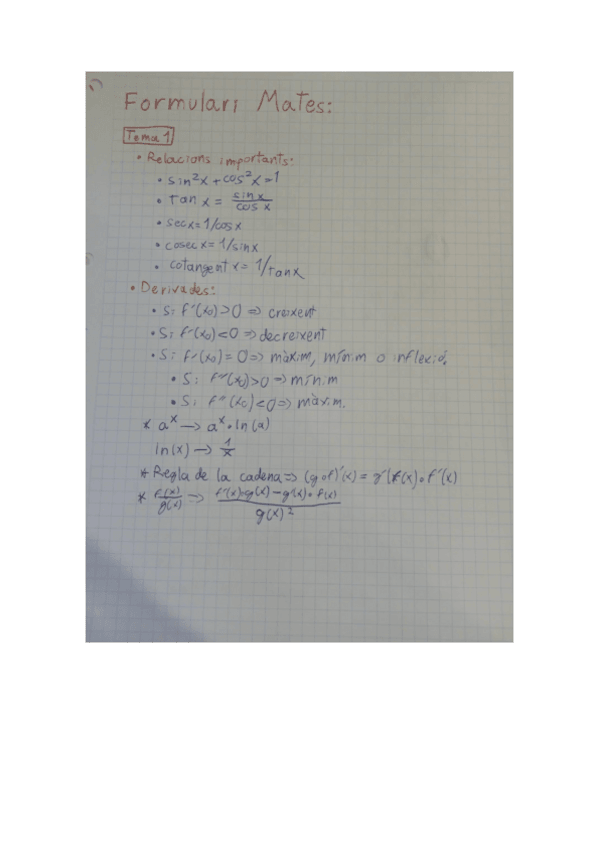 Formulari Mates:
Tema 1
• Relacions importants:
• sin²x + cos²x = 1
• tan x = sin x / cos x
• sec x = 1/cos x
• cosec x = 1/sin x
• cotangent x = 1/tan x
• Derivades:
• Si f'(x₀) > 0 => creixent
• Si f'(x₀) < 0 => decreixent
• Si f'(x₀) = 0 => màxim, mínim o inflexió.
• Si f''(x₀) > 0 => mínim
• Si f''(x₀) < 0 => màxim.
* aˣ → aˣ • ln(a)
ln(x) → 1/x
* Regla de la cadena => (g∘f)'(x) = g'(f(x) • f'(x)
* f(x)/g(x) => f'(x)•g(x) - g'(x)•f(x) / g(x)²